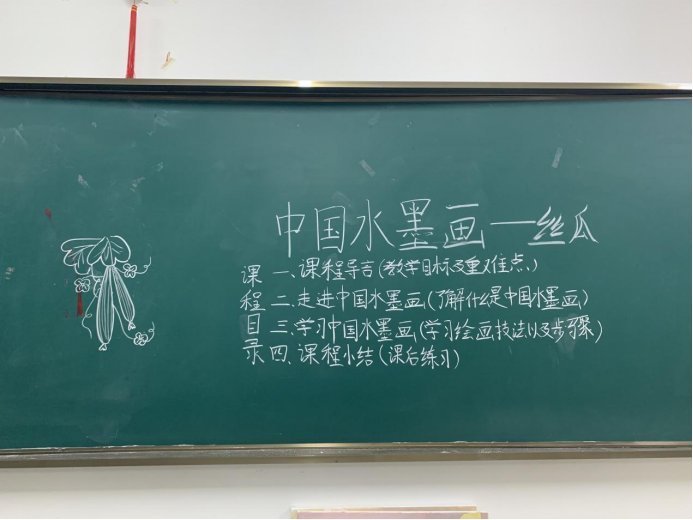 中国水墨画—丝瓜
课程目录
一、课程导言(教学目标及重难点)
二、走进中国水墨画(了解什么是中国水墨画)
三、学习中国水墨画(学习绘画技法以及步骤)
四、课程小结(课后练习)